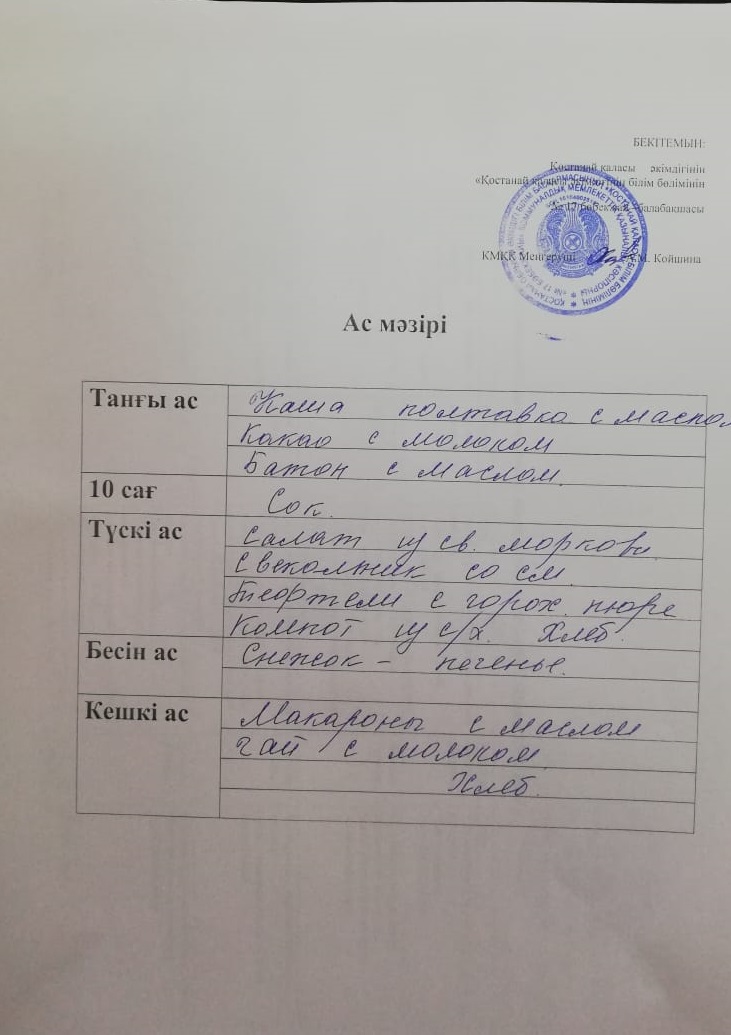 БЕКІТЕМЫН:
Қостанай қаласы әкімдігінің
«Қостанай қаласы білім бөлімінің
бөбекжай-балабақшасы
КМҚК Меңгеруші М. Койшина
Ас мәзірі
Танғы ас
Каша полтавка с маслом
Какао с молоком
Батон с маслом.
10 сағ
Сок.
Түскі ас
Салат из св. моркови
Свекольник со см.
Тефтели с горох. пюре
Компот из с/х. Хлеб.
Бесін ас
Снежок - печенье.
Кешкі ас
Макароны с маслом
Чай с молоком.
Хлеб.